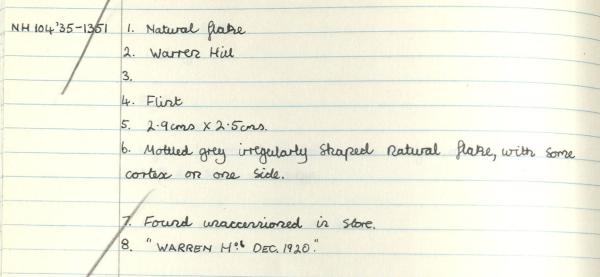 NH 104'35-1351 1. Natural flake
2. Warren Hill
3.
4. Flint
5. 2.9cms x 2.5cms.
6. Mottled grey irregularly shaped natural flake, with some
cortex on one side.
7. Found unaccessioned in store.
8. "WARREN H DEC. 1920."